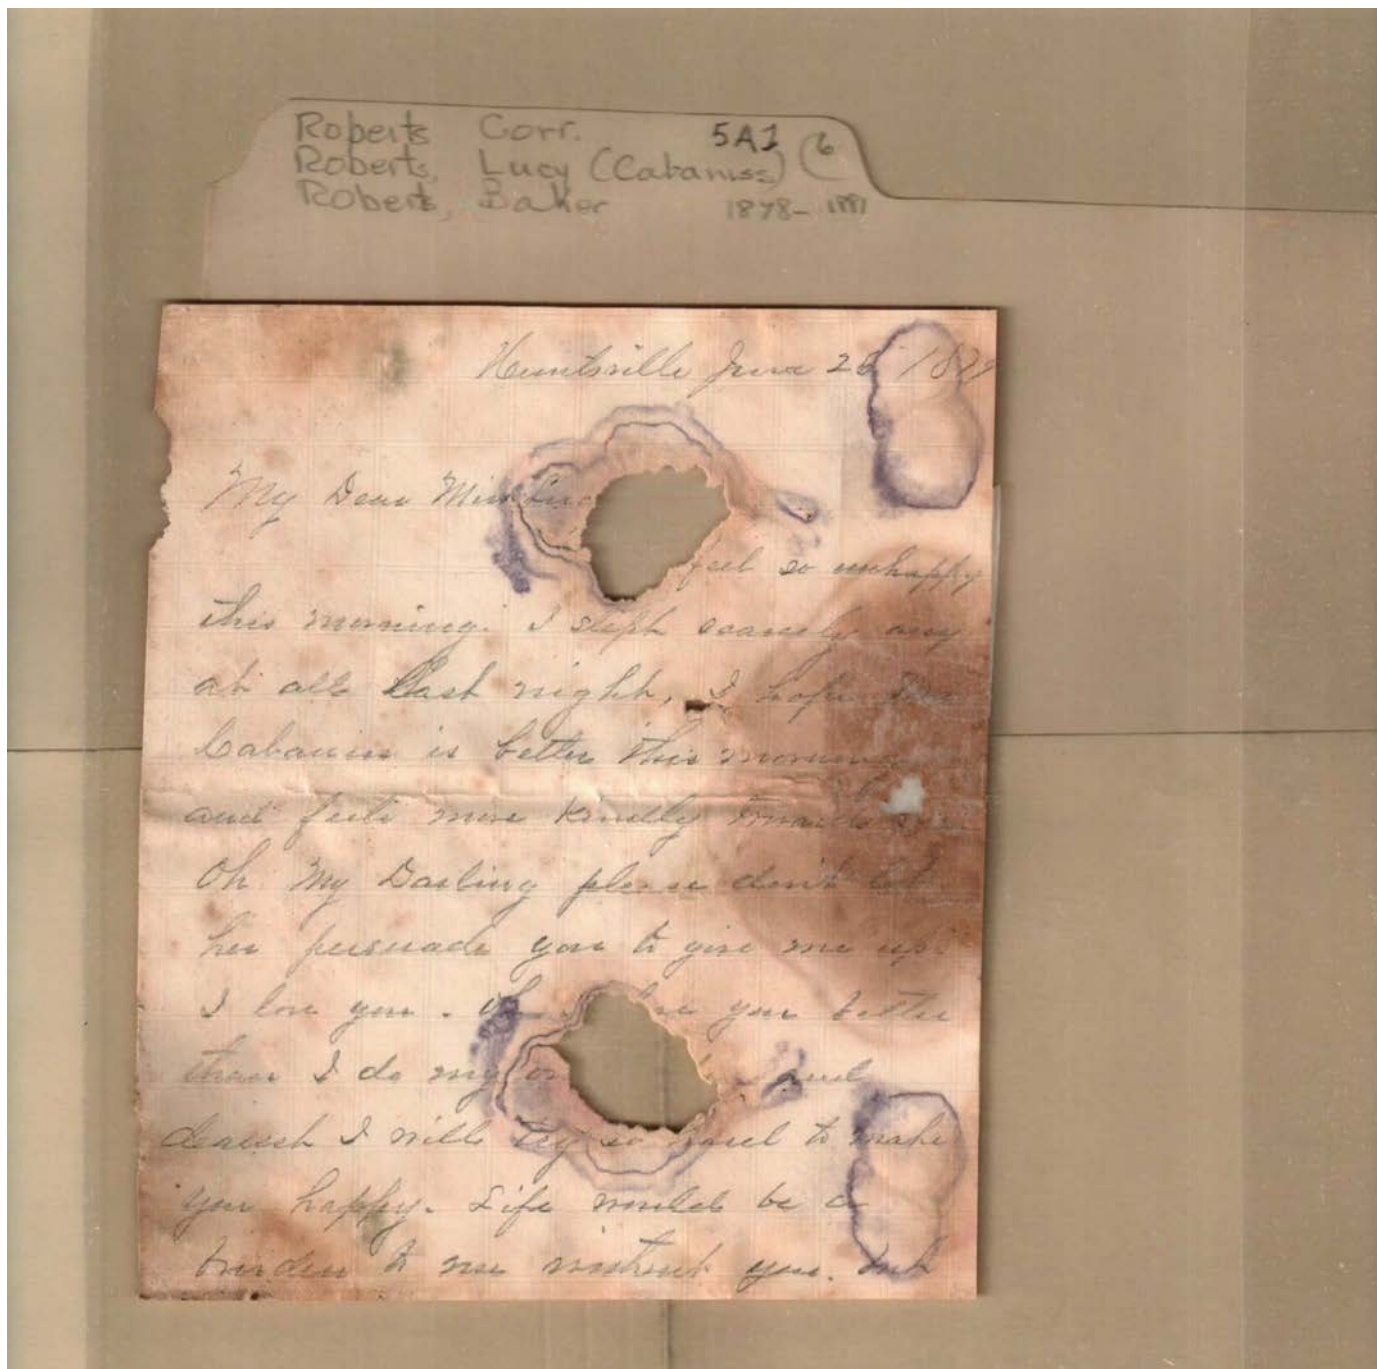 Roberts Corr. 5A1 (6
Roberts, Lucy (Cabaniss)
Roberts, Baker 1878-1881
Huntsville June 25 1879
My Dear Miss Luc
feel so unhappy
this morning. I slept scarcely any
at all last night, I hope
Cabaniss is better this morning
and feels more kindly towards
Oh My Darling please don't let
her persuade you to give me up.
I love you. Oh I you better
than I do my
dearest I will try so hard to make
you happy. Life would be a
burden to me without you.